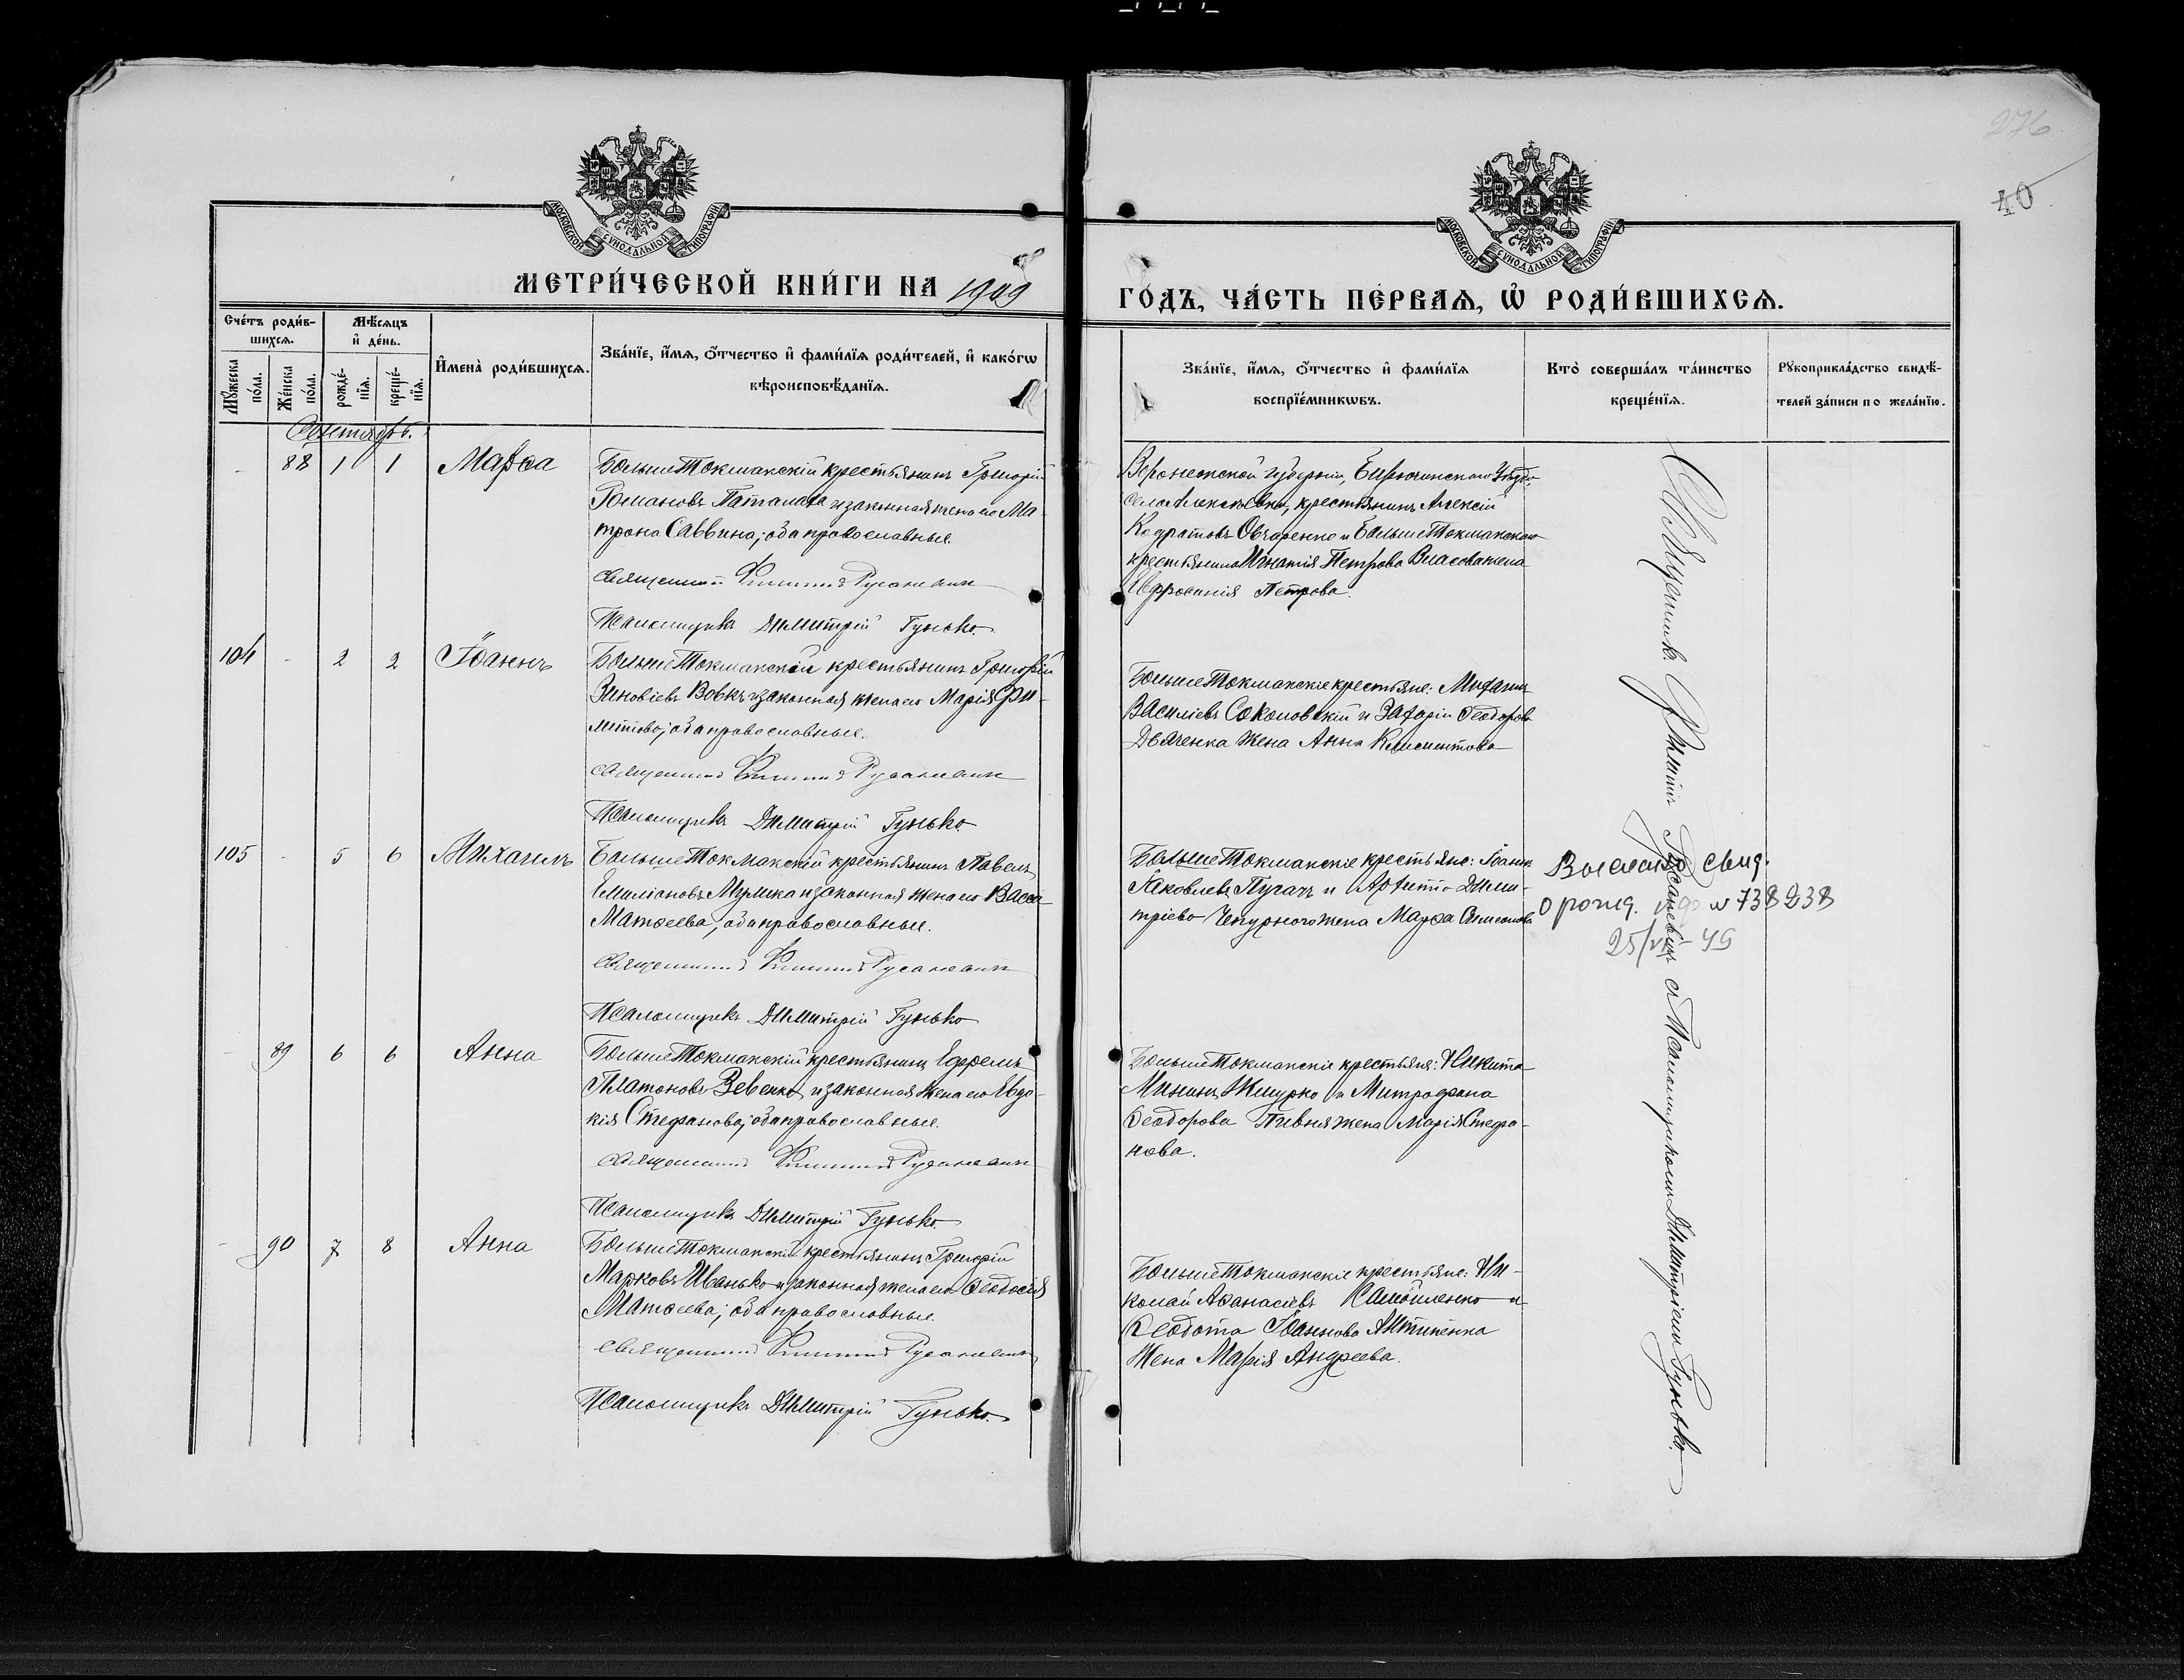 276
40
МОСКОВСКОЙ СѴНОДАЛЬНОЙ ТИПОГРАФІИ
МОСКОВСКОЙ СѴНОДАЛЬНОЙ ТИПОГРАФІИ
МЕТРИ́ЧЕСКОЙ КНИ́ГИ НА 1909
ГО́ДЪ, ЧА́СТЬ ПЕ́РВАѦ, Ѡ҆ РОДИ́ВШИХСѦ.
Сче́тъ роди́в-
шихсѧ.
Мꙋ́жеска по́ла.
Же́нска по́ла.
Мѣ́сѧцъ
и҆ де́нь.
рожде́-
нїѧ.
креще́-
нїѧ.
И҆мена̀ роди́вшихсѧ.
Зва́нїе, и҆́мѧ, ѻ҆́тчество и҆ фами́лїѧ роди́телей, и҆ како́гѡ
вѣроисповѣ́данїѧ.
Зва́нїе, и҆́мѧ, ѻ҆́тчество и҆ фами́лїѧ
воспрїе́мникѡвъ.
Кто̀ соверша́лъ та́инство
креще́нїѧ.
Рꙋкоприкла́дство свидѣ́-
телей за́писи по жела́нїю.
Сентябрь.
- 88 1 1 Марѳа
Больше Токмакскій крестьянинъ Григорій
Романовъ и законная жена его Ма-
трона Саввина; оба православные.
Священникъ Филиппъ Русаневичъ
Псаломщикъ Димитрій Гунько.
Воронежской губерніи, Бирюченскаго Уѣзда,
села Алексѣевки, крестьянинъ Алексій
Кодратовъ Овчаренко и Больше Токмакскаго
крестьянина Игнатія Петрова Власова жена
Евфросинія Петрова.
104 - 2 2 Іоаннъ
Больше Токмакскій крестьянинъ Григорій
Зиновіевъ Вовкъ и законная жена его Марія Фи-
липпова; оба православные.
Священникъ Филиппъ Русаневичъ
Псаломщикъ Димитрій Гунько.
Больше Токмакскіе крестьяне: Михаилъ
Василіевъ Соколовскій и Захарія Ѳеодорова
Дьяченка жена Анна Климентова
105 - 5 6 Михаилъ
Больше Токмакскій крестьянинъ Павелъ
Емиліановъ и законная жена его Васса
Матѳеева; оба православные.
Священникъ Филиппъ Русаневичъ
Псаломщикъ Димитрій Гунько
Больше Токмакскіе крестьяне: Іоаннъ
Іаковлевъ Пугачъ и Дими-
тріева Чепурного жена Марѳа Анисимова
свид.
о рожд. № 738238
25/VII-49
- 89 6 6 Анна
Больше Токмакскій крестьянинъ Ефремъ
Платоновъ Зевенко и законная жена его Евдо-
кія Стефанова; оба православные.
Священникъ Филиппъ Русаневичъ
Псаломщикъ Димитрій Гунько.
Больше Токмакскіе крестьяне: Никита
Мининъ Жмурко и Митрофана
Ѳеодорова Пивня жена Марія Стефа-
нова.
- 90 7 8 Анна
Больше Токмакскій крестьянинъ Григорій
Марковъ Иванько и законная жена его Ѳеодосія
Матѳеева; оба православные.
Священникъ Филиппъ Русаневичъ
Псаломщикъ Димитрій Гунько.
Больше Токмакскіе крестьяне: Ни-
колай Аѳанасіевъ Самойленко и
Ѳеодота Іоаннова Антипенка
жена Марія Андреева.
Священникъ Филиппъ Русаневичъ съ Псаломщикомъ Димитріемъ Гунько.